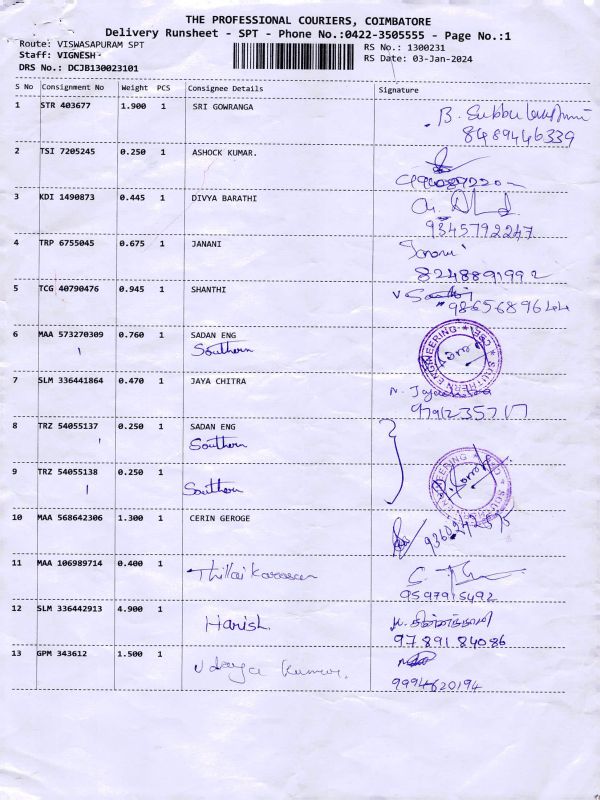 THE PROFESSIONAL COURIERS, COIMBATORE
Delivery Runsheet - SPT - Phone No.:0422-3505555 - Page No.:1
Route: VISWASAPURAM SPT
RS No.: 1300231
Staff: VIGNESH
RS Date: 03-Jan-2024
DRS No.: DCJB130023101
S No Consignment No Weight PCS Consignee Details Signature
1 STR 403677 1.900 1 SRI GOWRANGA
8489446339
2 TSI 7205245 0.250 1 ASHOCK KUMAR.
3 KDI 1490873 0.445 1 DIVYA BARATHI
9345792247
4 TRP 6755045 0.675 1 JANANI Janani
8248891992
5 TCG 40790476 0.945 1 SHANTHI
9865689644
6 MAA 573270309 0.760 1 SADAN ENG
Southern
SOUTHERN ENGINEERING
7 SLM 336441864 0.470 1 JAYA CHITRA
8 TRZ 54055137 0.250 1 SADAN ENG
Southern
9 TRZ 54055138 0.250 1
Southern
10 MAA 568642306 1.300 1 CERIN GEROGE
11 MAA 106989714 0.400 1 Thillai Karasan
9597915492
12 SLM 336442913 4.900 1 Harish
97891 84086
13 GPM 343612 1.500 1 Udaya Kumar.
9994620194